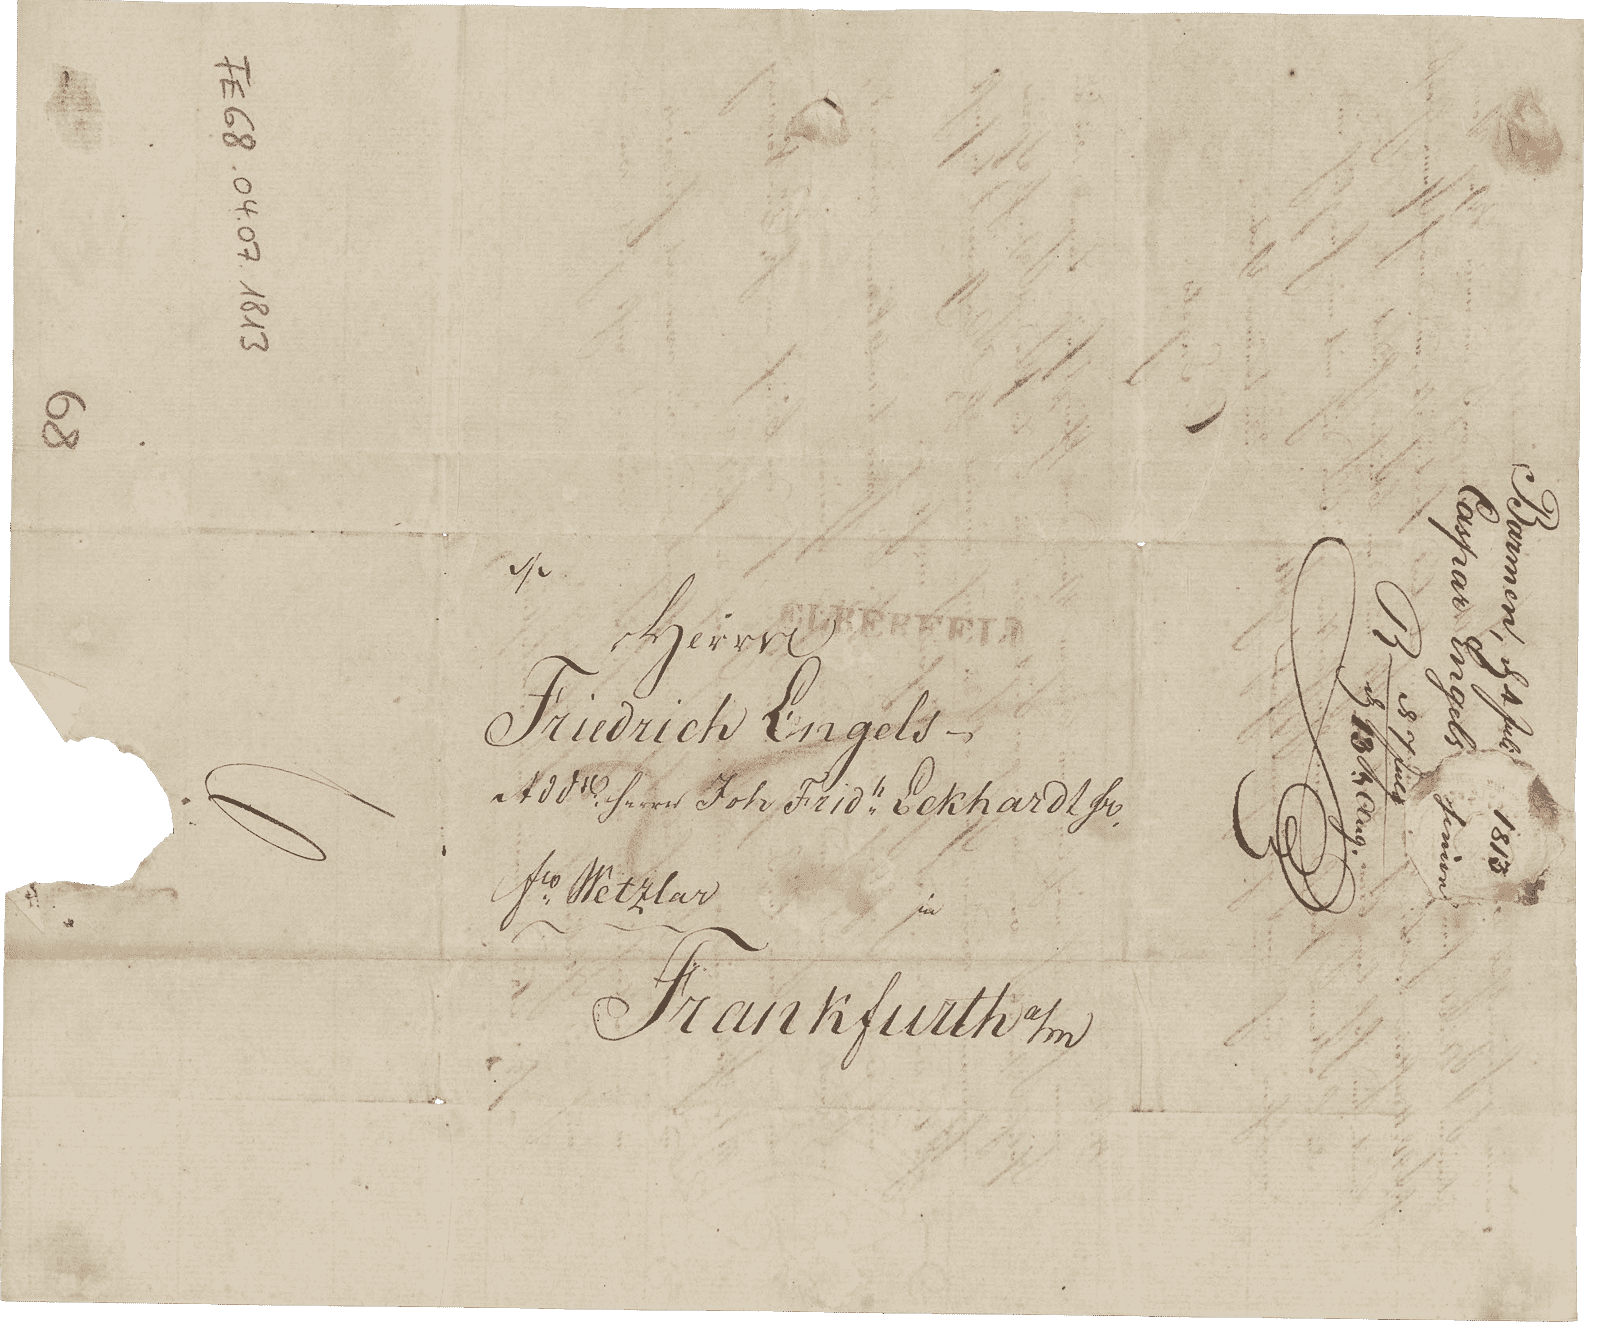 FE68.04.07.1813
68
ELBERFELD
Herrn
Friedrich Engels
Addr. Herrn Joh Fridr. Eckhardt sr.
fro Wetzlar in
Frankfurth a/m
Barmen, d 4 Juli 1813
Caspar Engels senior
R d 7 Julÿ
B d 13 Aug.